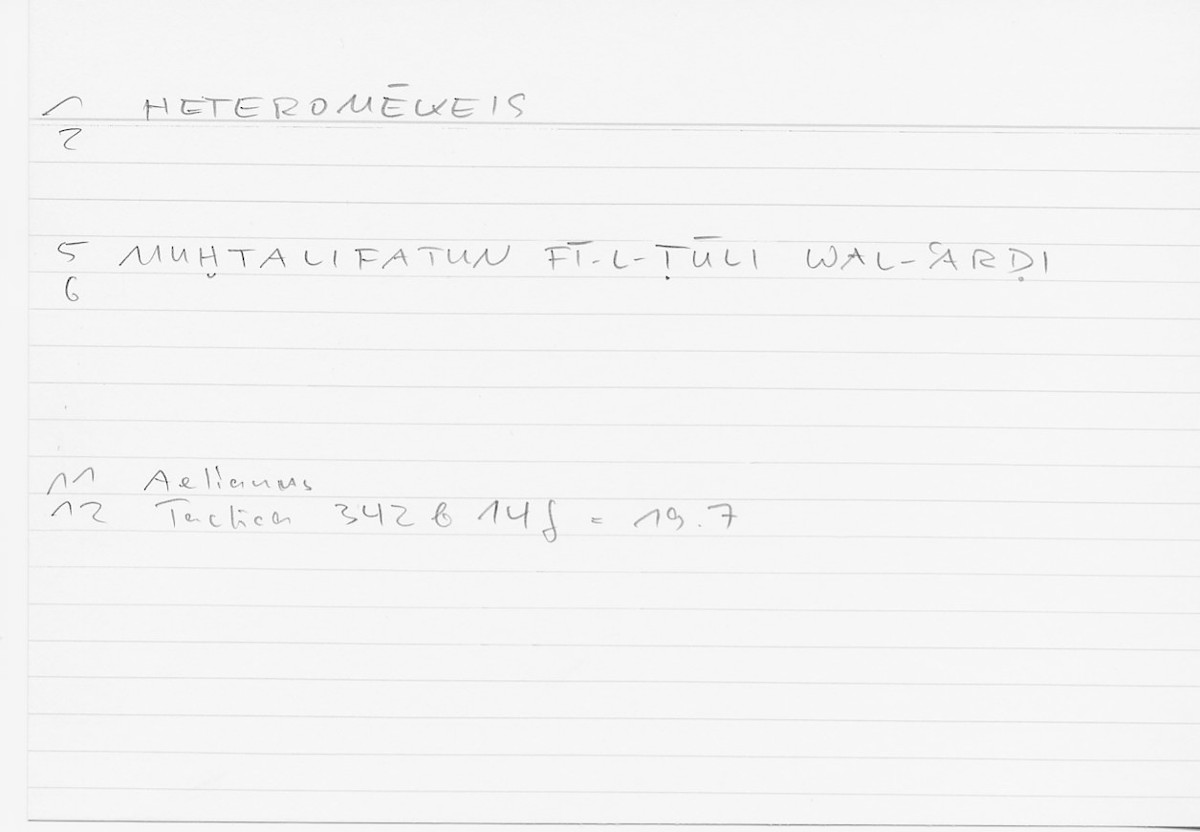 1 HETEROMĒKEIS
2
5 MUḪTALIFATUN FĪ-L-ṬŪLI WAL-ʿARḌI
6
11 Aelianus
12 Tactica 342 b 14f = 19.7